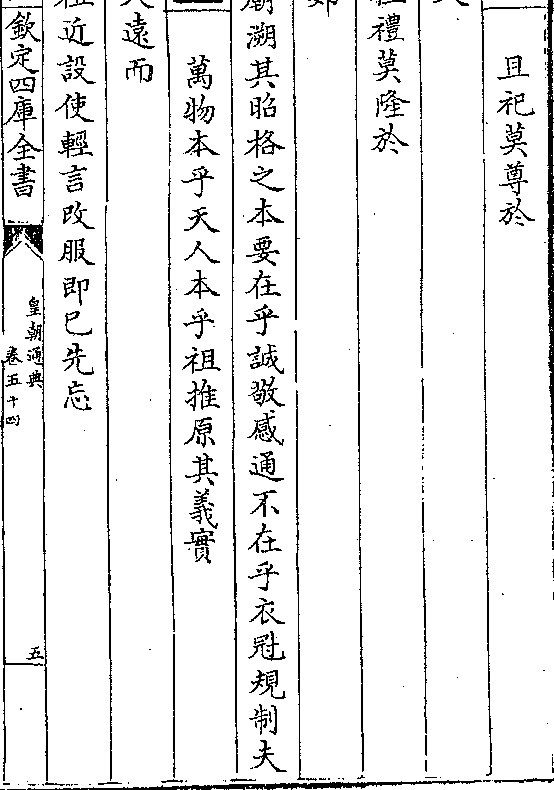 且祀莫尊於
禮莫隆於
廟溯其昭格之本要在乎誠敬感通不在乎衣冠規制夫
萬物本乎天人本乎祖推原其義實
天遠而
祖近設使輕言改服即已先忘
欽定四庫全書
皇朝通典
卷五十四
五